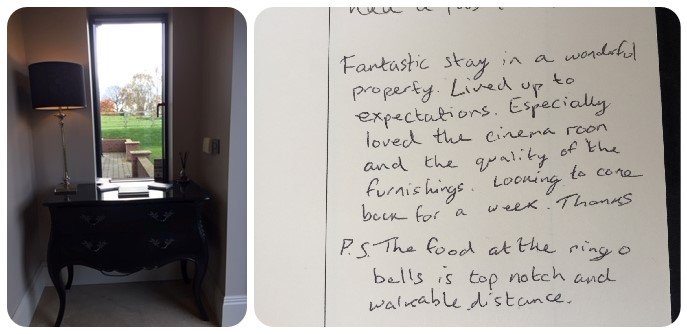 Fantastic stay in a wonderful
property. Lived up to
expectations. Especially
loved the cinema room
and the quality of the
furnishings. Looking to come
back for a week. Thanks
P.S. The food at the ring o
bells is top notch and
walkable distance.